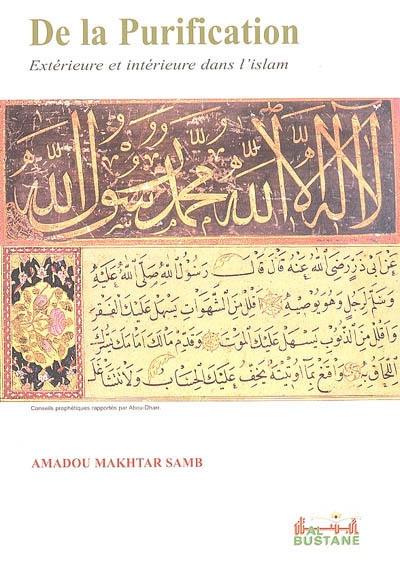 De la Purification
Extérieure et intérieure dans l'islam
لا إله إلا الله محمد رسول الله
عَنْ أَبِي ذَرٍّ رَضِيَ اللهُ عَنْهُ قَالَ قَالَ رَسُولُ اللهِ صَلَّى اللهُ عَلَيْهِ
وَسَلَّمَ لِرَجُلٍ وَهُوَ يُوصِيهِ أَقْلِلْ مِنَ الشَّهَوَاتِ يَسْهُلْ عَلَيْكَ الْفَقْرُ
وَأَقْلِلْ مِنَ الذُّنُوبِ يَسْهُلْ عَلَيْكَ الْمَوْتُ وَقَدِّمْ مَالَكَ أَمَامَكَ يَسُرُّكَ
اللَّحَاقُ بِهِ وَاقْنَعْ بِمَا أُوتِيتَهُ يَخِفَّ عَلَيْكَ الْحِسَابُ وَلَا تَتَشَاغَلْ
Conseils prophétiques rapportés par Abou-Dharr.
AMADOU MAKHTAR SAMB
AL
BUSTANE